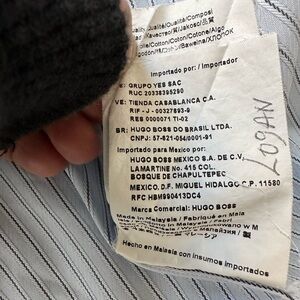 Quality/Qualité/Composi
/Качество/质/Jakość/品質
/Cotton/Coton/Cotone/Algo
/Baweľna/ХЛОПОК
Importado por: / Importador
GRUPO YES SAC
RUC 20338395290
VE: TIENDA CASABLANCA C.A.
RIF - J - 00327893-9
RES 0000071 TI-02
BR: HUGO BOSS DO BRASIL LTDA.
CNPJ: 57-821-054/0001-91
Importado para Mexico por:
HUGO BOSS MEXICO S.A. DE C.V,
LAMARTINE No. 415 COL.
BOSQUE DE CHAPULTEPEC
MEXICO, D.F. MIGUEL HIDALGO, C.P. 11580
RFC HBM990413DC4
Marca Comercial: HUGO BOSS
Made in Malaysia / Fabriqué en Mala
Hecho en Malasia con insumos importados
LOGAN